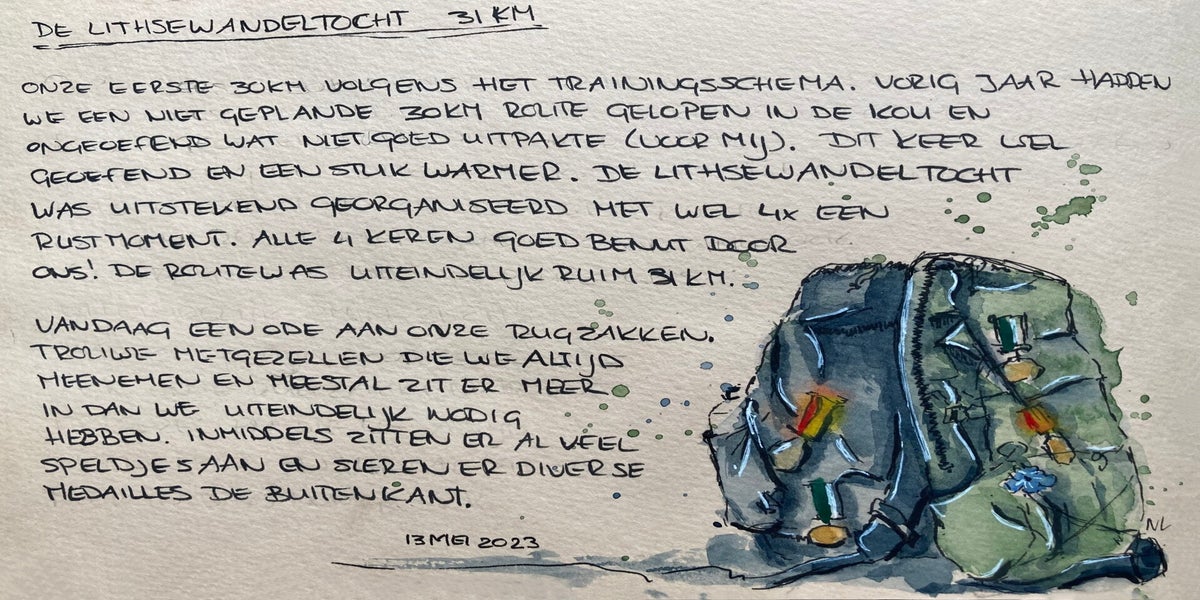 DE LITHSEWANDELTOCHT 31 KM
ONZE EERSTE 30KM VOLGENS HET TRAININGSSCHEMA. VORIG JAAR HADDEN
WE EEN NIET GEPLANDE 30KM ROUTE GELOPEN IN DE KOU EN
ONGEOEFEND WAT NIET GOED UITPAKTE (VOOR MIJ). DIT KEER WEL
GEOEFEND EN EEN STUK WARMER. DE LITHSEWANDELTOCHT
WAS UITSTEKEND GEORGANISEERD MET WEL 4X EEN
RUSTMOMENT. ALLE 4 KEREN GOED BENUT DOOR
ONS! DE ROUTE WAS UITEINDELIJK RUIM 31 KM.
VANDAAG EEN ODE AAN ONZE RUGZAKKEN.
TROUWE METGEZELLEN DIE WE ALTIJD
MEENEMEN EN MEESTAL ZIT ER MEER
IN DAN WE UITEINDELIJK NODIG
HEBBEN. INMIDDELS ZITTEN ER AL VEEL
SPELDJES AAN EN SIEREN ER DIVERSE
MEDAILLES DE BUITENKANT.
13 MEI 2023
NL